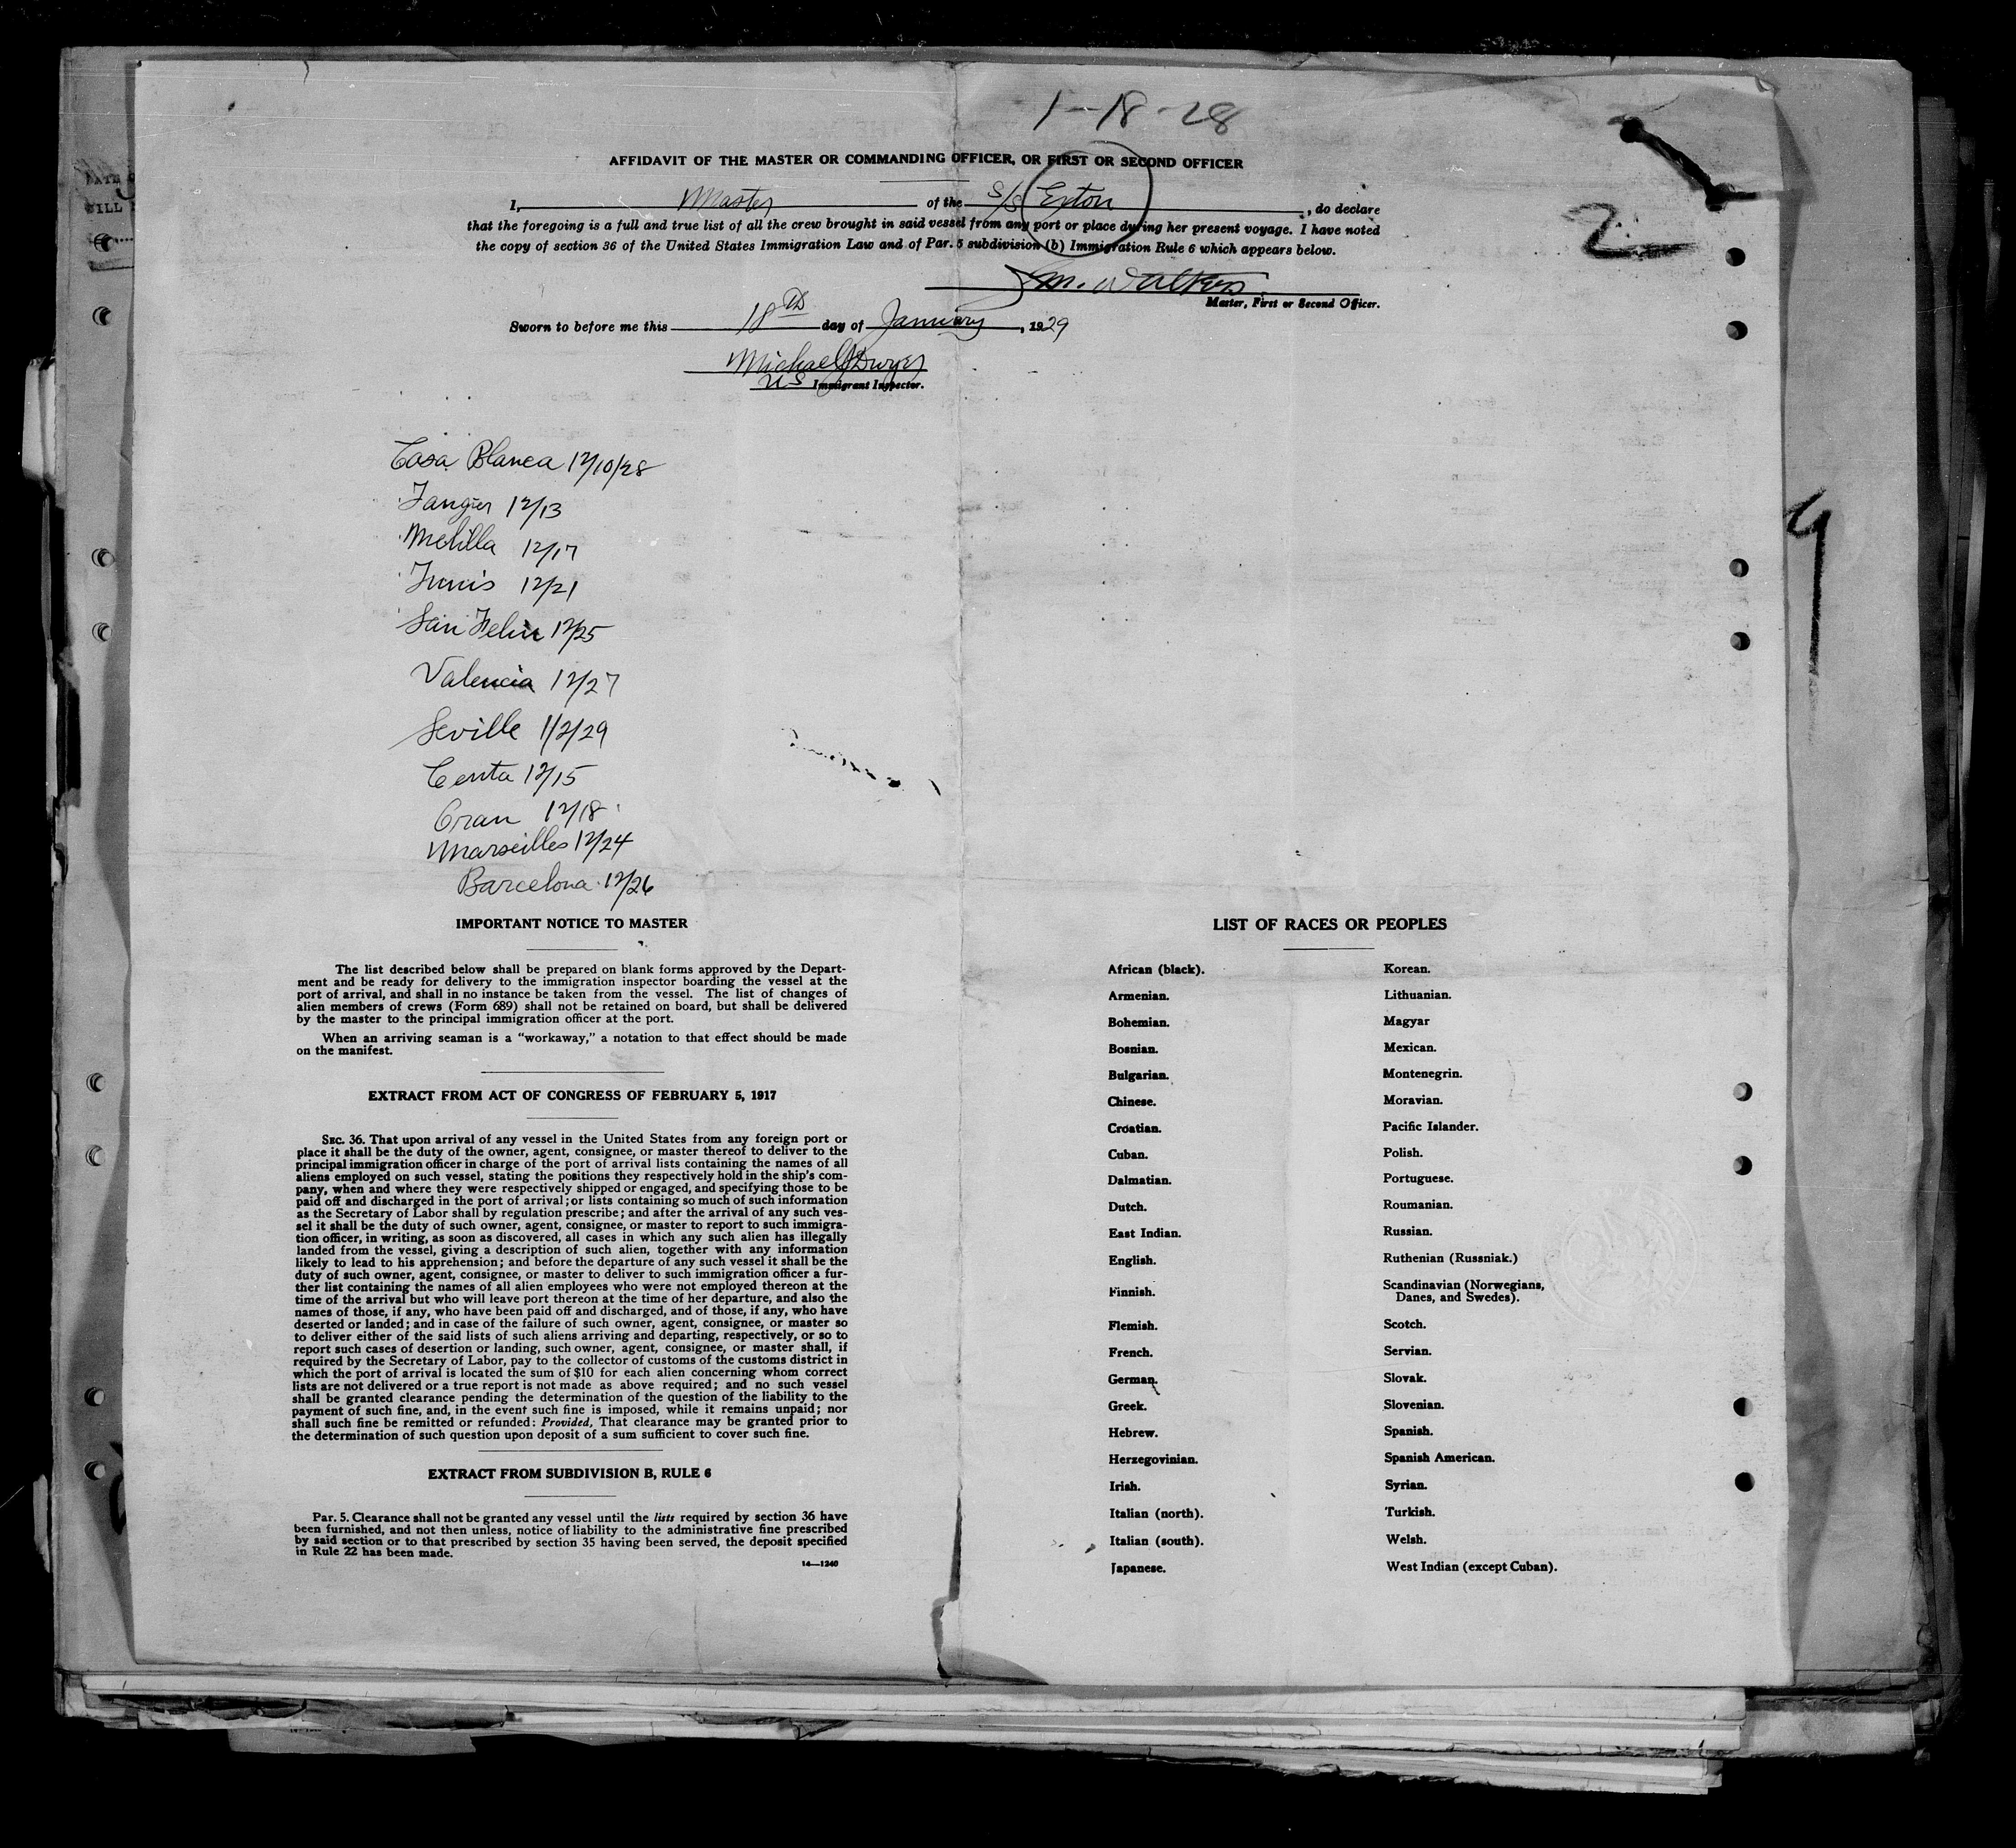 1-18-28
AFFIDAVIT OF THE MASTER OR COMMANDING OFFICER, OR FIRST OR SECOND OFFICER
I, Master of the S/S Exton, do declare
that the foregoing is a full and true list of all the crew brought in said vessel from any port or place during her present voyage. I have noted
the copy of section 36 of the United States Immigration Law and of Par. 5 subdivision (b) Immigration Rule 6 which appears below.
2
M. Walters
Master, First or Second Officer.
Sworn to before me this 18th day of January, 1929
Michael J Dwyer
US Immigrant Inspector.
Casa Blanca 12/10/28
Tangier 12/13
Melilla 12/17
Tunis 12/21
San Feliu 12/25
Valencia 12/27
Seville 1/2/29
Ceuta 12/15
Oran 12/18
Marseilles 12/24
Barcelona 12/26
IMPORTANT NOTICE TO MASTER
The list described below shall be prepared on blank forms approved by the Depart-
ment and be ready for delivery to the immigration inspector boarding the vessel at the
port of arrival, and shall in no instance be taken from the vessel. The list of changes of
alien members of crews (Form 689) shall not be retained on board, but shall be delivered
by the master to the principal immigration officer at the port.
When an arriving seaman is a "workaway," a notation to that effect should be made
on the manifest.
EXTRACT FROM ACT OF CONGRESS OF FEBRUARY 5, 1917
SEC. 36. That upon arrival of any vessel in the United States from any foreign port or
place it shall be the duty of the owner, agent, consignee, or master thereof to deliver to the
principal immigration officer in charge of the port of arrival lists containing the names of all
aliens employed on such vessel, stating the positions they respectively hold in the ship's com-
pany, when and where they were respectively shipped or engaged, and specifying those to be
paid off and discharged in the port of arrival; or lists containing so much of such information
as the Secretary of Labor shall by regulation prescribe; and after the arrival of any such ves-
sel it shall be the duty of such owner, agent, consignee, or master to report to such immigra-
tion officer, in writing, as soon as discovered, all cases in which any such alien has illegally
landed from the vessel, giving a description of such alien, together with any information
likely to lead to his apprehension; and before the departure of any such vessel it shall be the
duty of such owner, agent, consignee, or master to deliver to such immigration officer a fur-
ther list containing the names of all alien employees who were not employed thereon at the
time of the arrival but who will leave port thereon at the time of her departure, and also the
names of those, if any, who have been paid off and discharged, and of those, if any, who have
deserted or landed; and in case of the failure of such owner, agent, consignee, or master so
to deliver either of the said lists of such aliens arriving and departing, respectively, or so to
report such cases of desertion or landing, such owner, agent, consignee, or master shall, if
required by the Secretary of Labor, pay to the collector of customs of the customs district in
which the port of arrival is located the sum of $10 for each alien concerning whom correct
lists are not delivered or a true report is not made as above required; and no such vessel
shall be granted clearance pending the determination of the question of the liability to the
payment of such fine, and, in the event such fine is imposed, while it remains unpaid; nor
shall such fine be remitted or refunded: Provided, That clearance may be granted prior to
the determination of such question upon deposit of a sum sufficient to cover such fine.
EXTRACT FROM SUBDIVISION B, RULE 6
Par. 5. Clearance shall not be granted any vessel until the lists required by section 36 have
been furnished, and not then unless, notice of liability to the administrative fine prescribed
by said section or to that prescribed by section 35 having been served, the deposit specified
in Rule 22 has been made.
14—1240
LIST OF RACES OR PEOPLES
African (black).
Armenian.
Bohemian.
Bosnian.
Bulgarian.
Chinese.
Croatian.
Cuban.
Dalmatian.
Dutch.
East Indian.
English.
Finnish.
Flemish.
French.
German.
Greek.
Hebrew.
Herzegovinian.
Irish.
Italian (north).
Italian (south).
Japanese.
Korean.
Lithuanian.
Magyar
Mexican.
Montenegrin.
Moravian.
Pacific Islander.
Polish.
Portuguese.
Roumanian.
Russian.
Ruthenian (Russniak.)
Scandinavian (Norwegians,
Danes, and Swedes).
Scotch.
Servian.
Slovak.
Slovenian.
Spanish.
Spanish American.
Syrian.
Turkish.
Welsh.
West Indian (except Cuban).